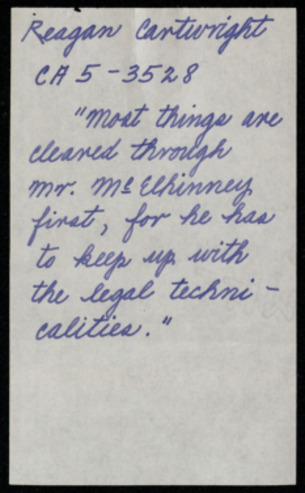 Reagan Cartwright
CA 5-3528
"Most things are
cleared through
Mr. McElhinney
first, for he has
to keep up with
the legal techni-
calities."